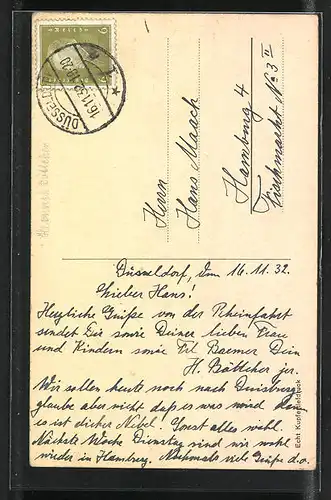 DÜSSELDORF
16.11.32
Herrn
Hans Maach
Hamburg 4
Fischmarkt No 3 II
Düsseldorf, den 16.11.32.
Lieber Hans!
Herzliche Grüße von der Rheinfahrt
sendet Dir sowie Deiner lieben Frau
und Kindern sowie Frl. Dein
H. Böttcher jr.
Wir sollen heute noch nach Duisburg
glaube aber nicht daß es was wird denn
es ist dicker Nebel. Sonst alles wohl.
Nächste Woche Dienstag sind wir wohl
wieder in Hamburg. Nochmals viele Grüße d.o.
Echt Kupfertiefdruck